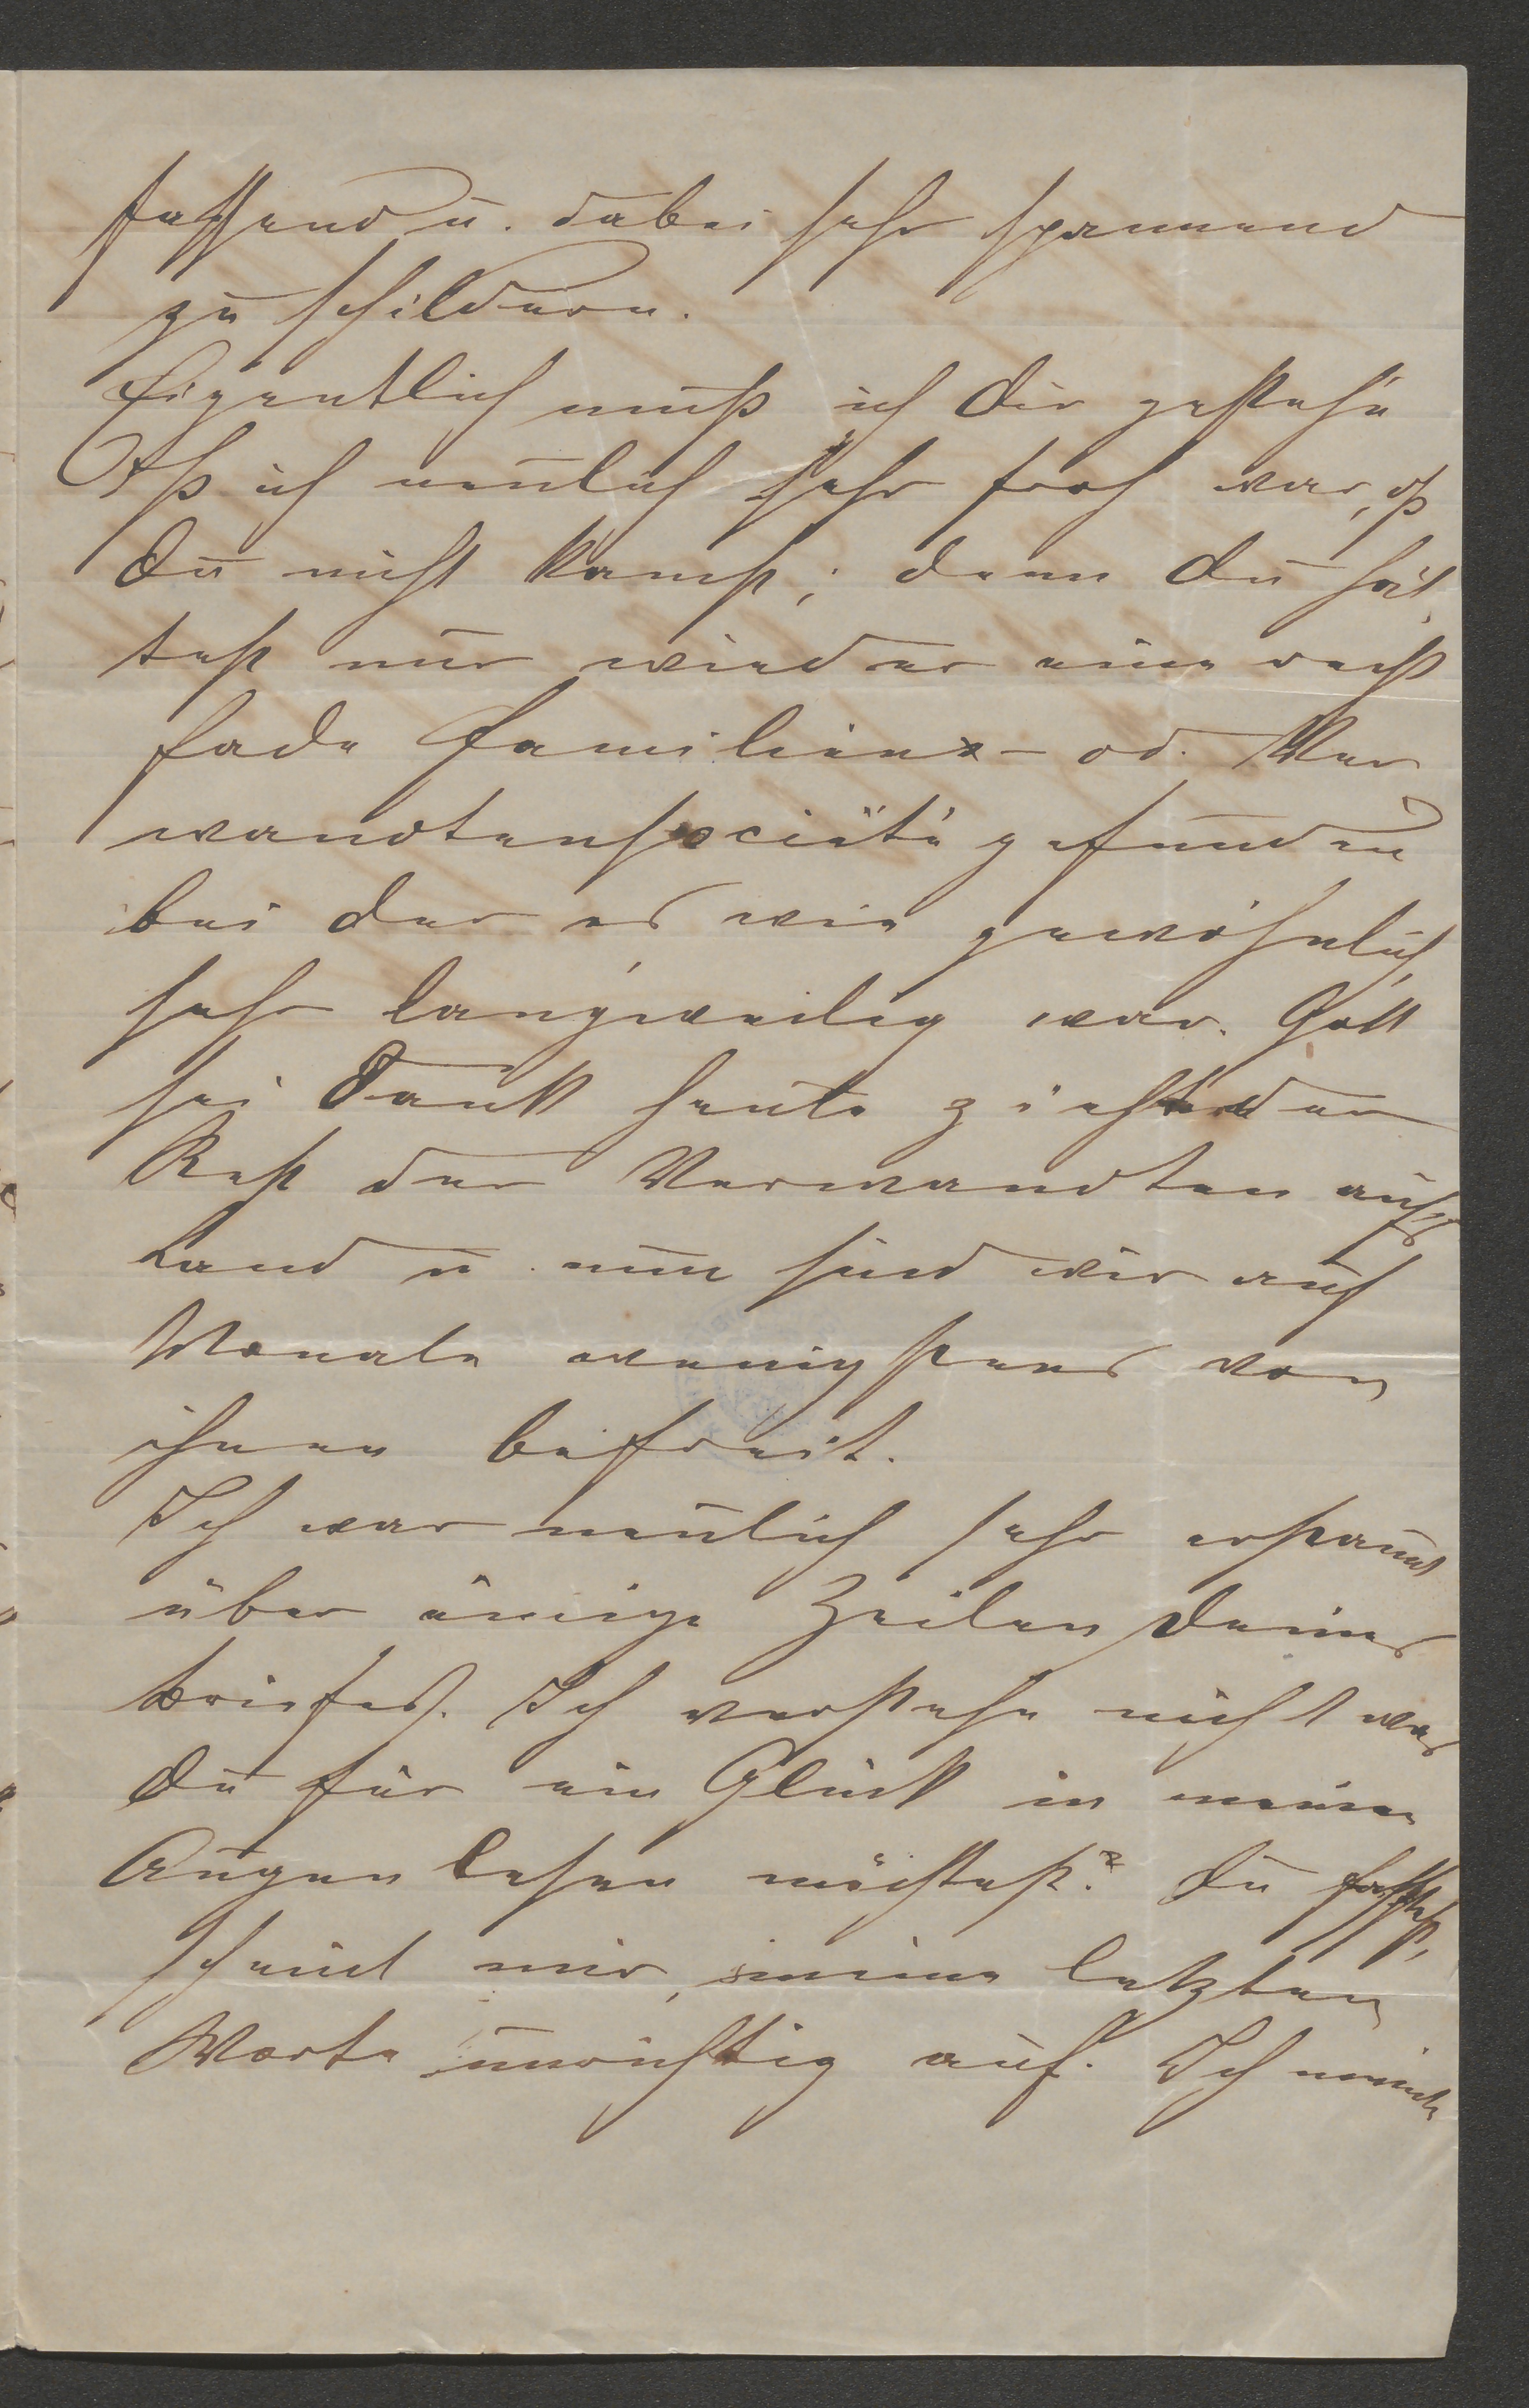 fassend u. dabei sehr spannend
zu schildern.
Eigentlich muß ich Dir gestehn
dß ich neulich sehr froh war, dß
Du nicht kamst; denn Du hät
test nur wieder eine recht
fade Familien- od. Ver
wandtensociété gefunden
bei der es, wie gewöhnlich,
sehr langweilig war. Gott
sei Dank heute zieht der
Rest der Verwandten aufs
Land u. nun sind wir auf
Monate wenigstens von
ihnen befreit.
Ich war neulich sehr erstaunt
über einige Zeilen Deines
Briefes. Ich verstehe nicht was
Du für ein Glück in meinen
Augen lesen möchtest? Du faßtest,
scheint mir, meine letzten
Worte unrichtig auf. Ich meinte